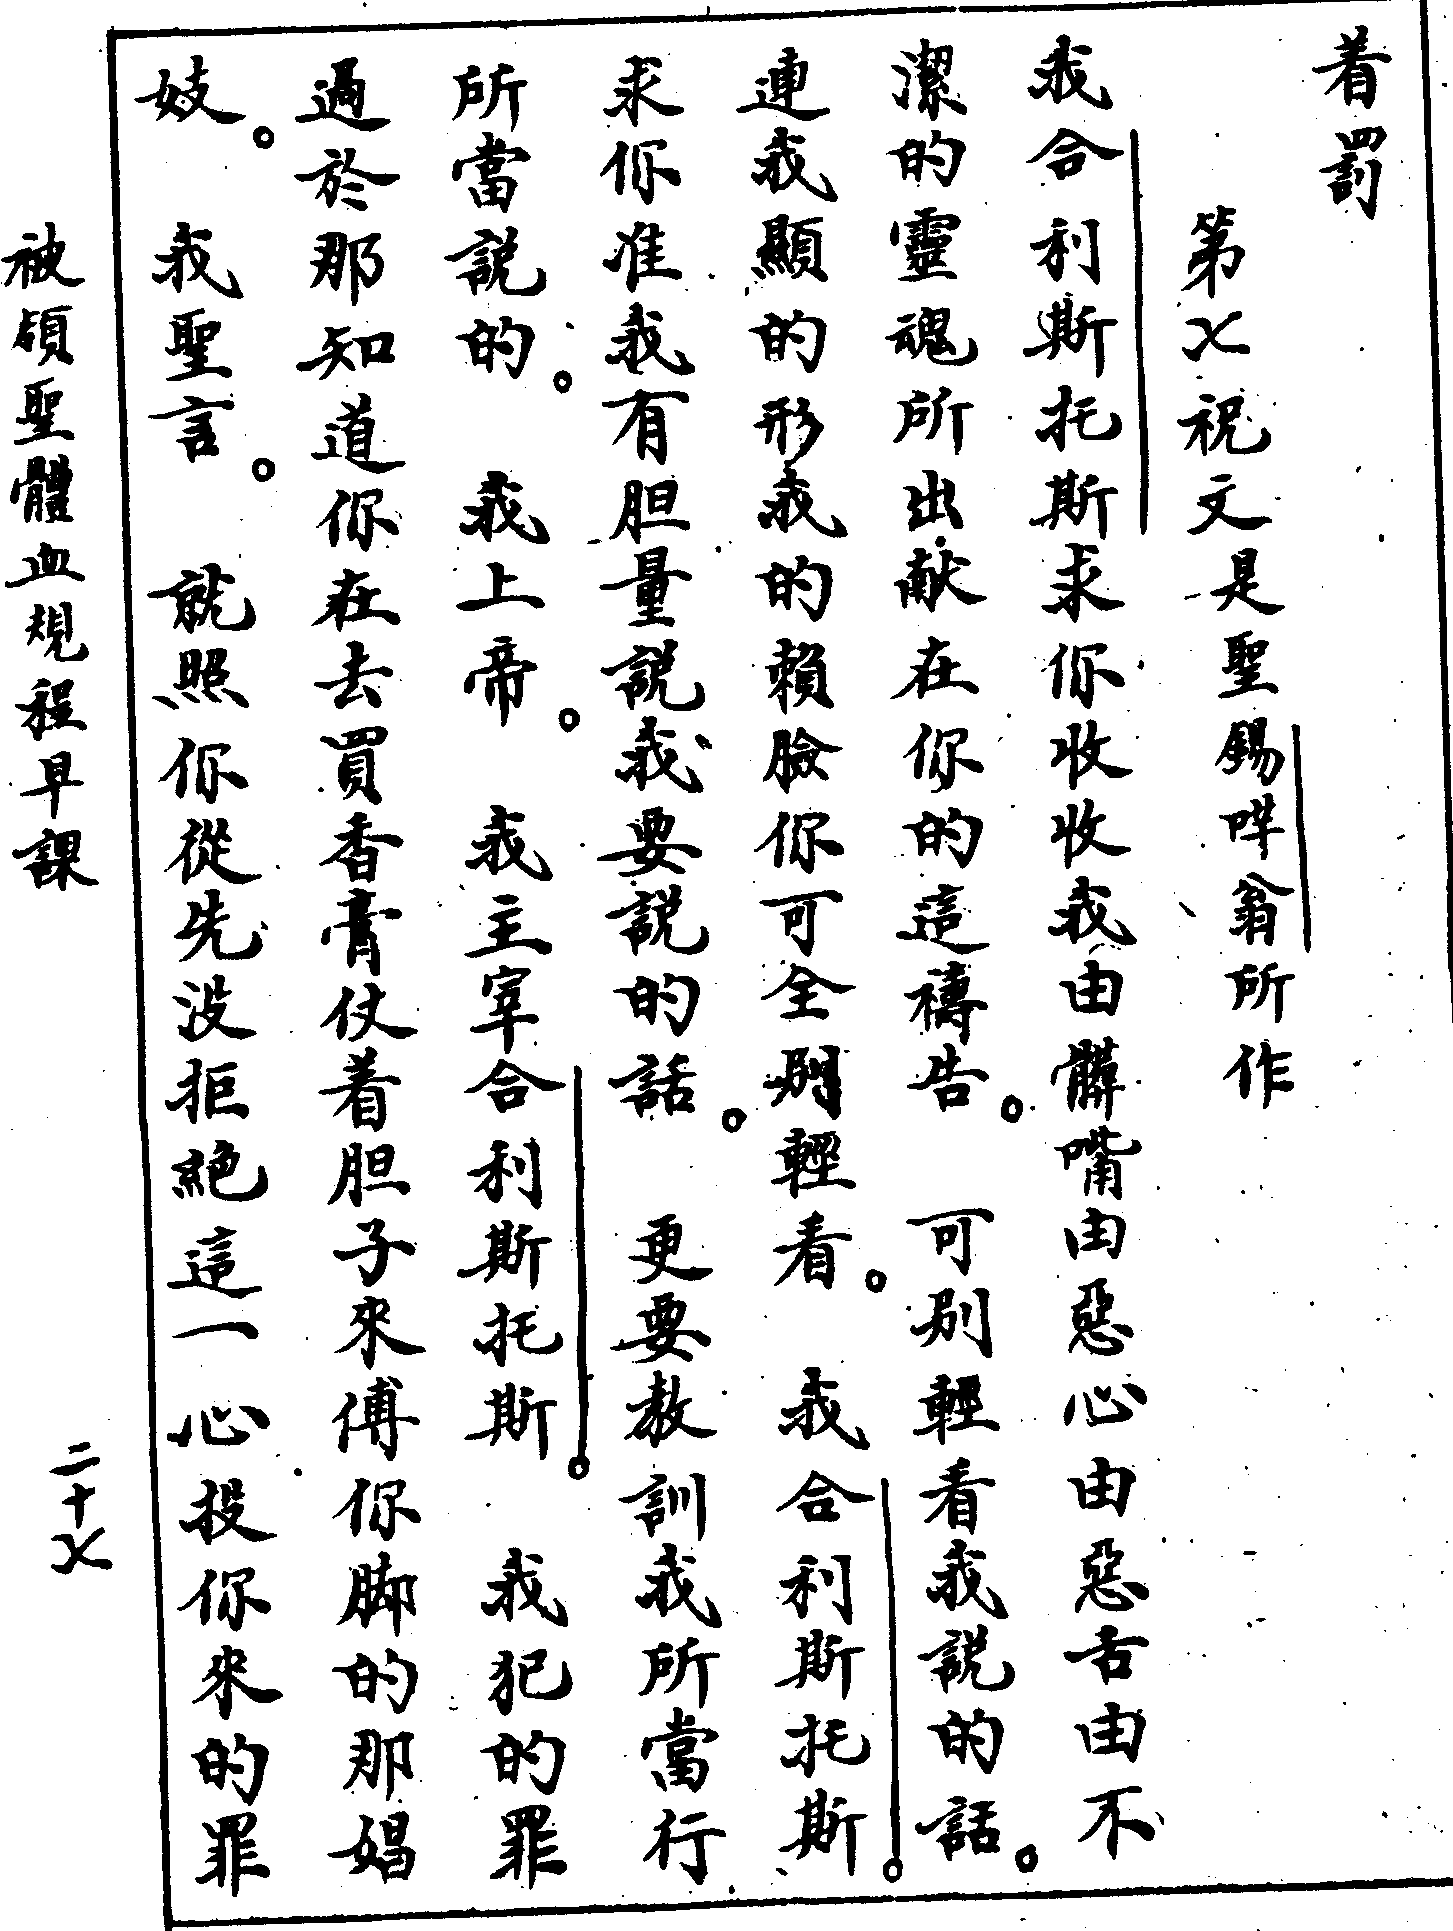 着罰
第七祝文是聖錫咩翁所作
我合利斯托斯求你收收我由髒嘴由惡心由惡舌由不
潔的靈魂所出献在你的這禱告。可别輕看我説的話。
連我顯的形我的賴臉你可全别輕看。我合利斯托斯。
求你准我有胆量説我要説的話。更要教訓我所當行
所當説的。我上帝。我主宰合利斯托斯。我犯的罪
過於那知道你在去買香膏仗着胆子來傅你脚的那娼
妓。我聖言。就照你從先没拒絶這一心投你來的罪
被領聖體血規程早課
二十七